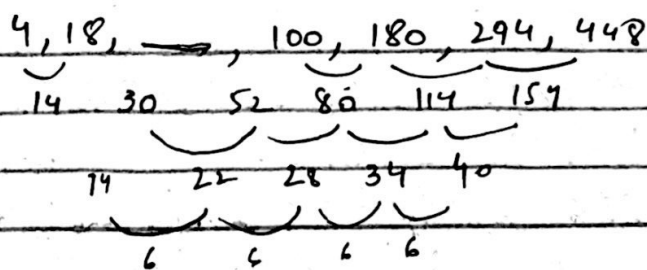 4, 18, —, 100, 180, 294, 448
14 30 52 80 114 154
14 22 28 34 40
6 6 6 6